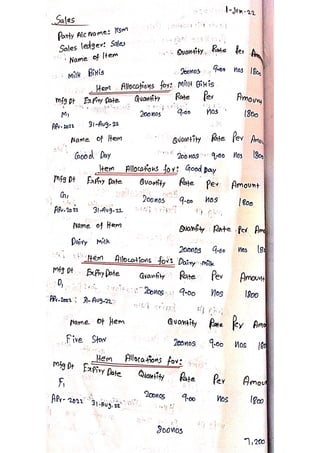 1-Jun-22
Sales
Party A/c Name: HSM
Sales ledger: Sales
Name of Item Quantity Rate Per Am
Milk Bikis 200nos 9.00 nos 1800
Item Allocations for: Milk Bikis
Mfg Dt Expiry Date Quantity Rate Per Amoun
M1 200nos 9.00 nos 1800
Apr-2022 31-Aug-22
Name of Item Quantity Rate Per Am
Good Day 200nos 9.00 nos 1800
Item Allocations for: Good Day
Mfg Dt Expiry Date Quantity Rate Per Amount
G1 200nos 9.00 nos 1800
Apr-2022 31-Aug-22
Name of Item Quantity Rate Per Am
Dairy Milk 200nos 9.00 nos 180
Item Allocations for: Dairy Milk
Mfg Dt Expiry Date Quantity Rate Per Amount
D1 200nos 9.00 nos 1800
Apr-2022 31-Aug-22
Name of Item Quantity Rate Per Amo
Five Star 200nos 9.00 nos 180
Item Allocations for:
Mfg Dt Expiry Date Quantity Rate Per Amou
F1 200nos 9.00 nos 1800
Apr-2022 31-Aug-22
800nos
7,200